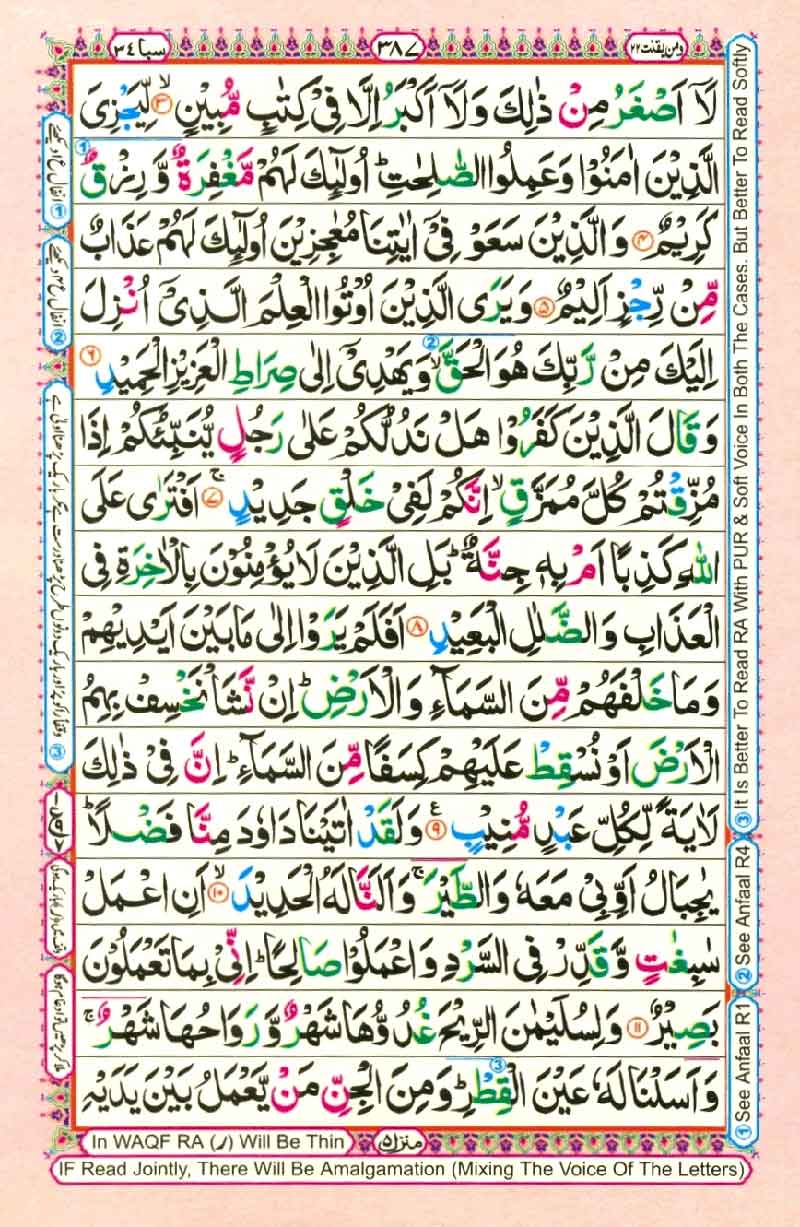 سبا ٣٤
٣٨٧
ومن يقنت ٢٢
لَاۤ اَصْغَرُ مِنْ ذٰلِكَ وَلَاۤ اَكْبَرُ اِلَّا فِیْ كِتٰبٍ مُّبِیْنٍ ۙ﴿٣﴾ لِّیَجْزِیَ
الَّذِیْنَ اٰمَنُوْا وَعَمِلُوا الصّٰلِحٰتِ ؕ اُولٰٓئِكَ لَهُمْ مَّغْفِرَةٌ وَّ رِزْقٌ
كَرِیْمٌ ﴿٤﴾ وَالَّذِیْنَ سَعَوْ فِیْۤ اٰیٰتِنَا مُعٰجِزِیْنَ اُولٰٓئِكَ لَهُمْ عَذَابٌ
مِّنْ رِّجْزٍ اَلِیْمٌ ﴿٥﴾ وَیَرَی الَّذِیْنَ اُوْتُوا الْعِلْمَ الَّذِیْۤ اُنْزِلَ
اِلَیْكَ مِنْ رَّبِّكَ هُوَ الْحَقَّ ۙ وَیَهْدِیْۤ اِلٰی صِرَاطِ الْعَزِیْزِ الْحَمِیْدِ ﴿٦﴾
وَقَالَ الَّذِیْنَ كَفَرُوْا هَلْ نَدُلُّكُمْ عَلٰی رَجُلٍ یُّنَبِّئُكُمْ اِذَا
مُزِّقْتُمْ كُلَّ مُمَزَّقٍ ۙ اِنَّكُمْ لَفِیْ خَلْقٍ جَدِیْدٍ ۚ﴿٧﴾ اَفْتَرٰی عَلَی
اللّٰهِ كَذِبًا اَمْ بِهٖ جِنَّةٌ ؕ بَلِ الَّذِیْنَ لَا یُؤْمِنُوْنَ بِالْاٰخِرَةِ فِی
الْعَذَابِ وَالضَّلٰلِ الْبَعِیْدِ ﴿٨﴾ اَفَلَمْ یَرَوْا اِلٰی مَا بَیْنَ اَیْدِیْهِمْ
وَمَا خَلْفَهُمْ مِّنَ السَّمَآءِ وَالْاَرْضِ ؕ اِنْ نَّشَاْ نَخْسِفْ بِهِمُ
الْاَرْضَ اَوْ نُسْقِطْ عَلَیْهِمْ كِسَفًا مِّنَ السَّمَآءِ ؕ اِنَّ فِیْ ذٰلِكَ
لَاٰیَةً لِّكُلِّ عَبْدٍ مُّنِیْبٍ ﴿٩﴾ وَلَقَدْ اٰتَیْنَا دَاوٗدَ مِنَّا فَضْلًا ؕ
یٰجِبَالُ اَوِّبِیْ مَعَهٗ وَالطَّیْرَ ۚ وَاَلَنَّا لَهُ الْحَدِیْدَ ۙ﴿١٠﴾ اَنِ اعْمَلْ
سٰبِغٰتٍ وَّقَدِّرْ فِی السَّرْدِ وَاعْمَلُوْا صَالِحًا ؕ اِنِّیْ بِمَا تَعْمَلُوْنَ
بَصِیْرٌ ﴿١١﴾ وَلِسُلَیْمٰنَ الرِّیْحَ غُدُوُّهَا شَهْرٌ وَّرَوَاحُهَا شَهْرٌ ۚ
وَاَسَلْنَا لَهٗ عَیْنَ الْقِطْرِ ؕ وَمِنَ الْجِنِّ مَنْ یَّعْمَلُ بَیْنَ یَدَیْهِ
منزل ٥
In WAQF RA (ر) Will Be Thin
IF Read Jointly, There Will Be Amalgamation (Mixing The Voice Of The Letters)
① See Anfaal R1
② See Anfaal R4
③ It Is Better To Read RA With PUR & Soft Voice In Both The Cases. But Better To Read Softly